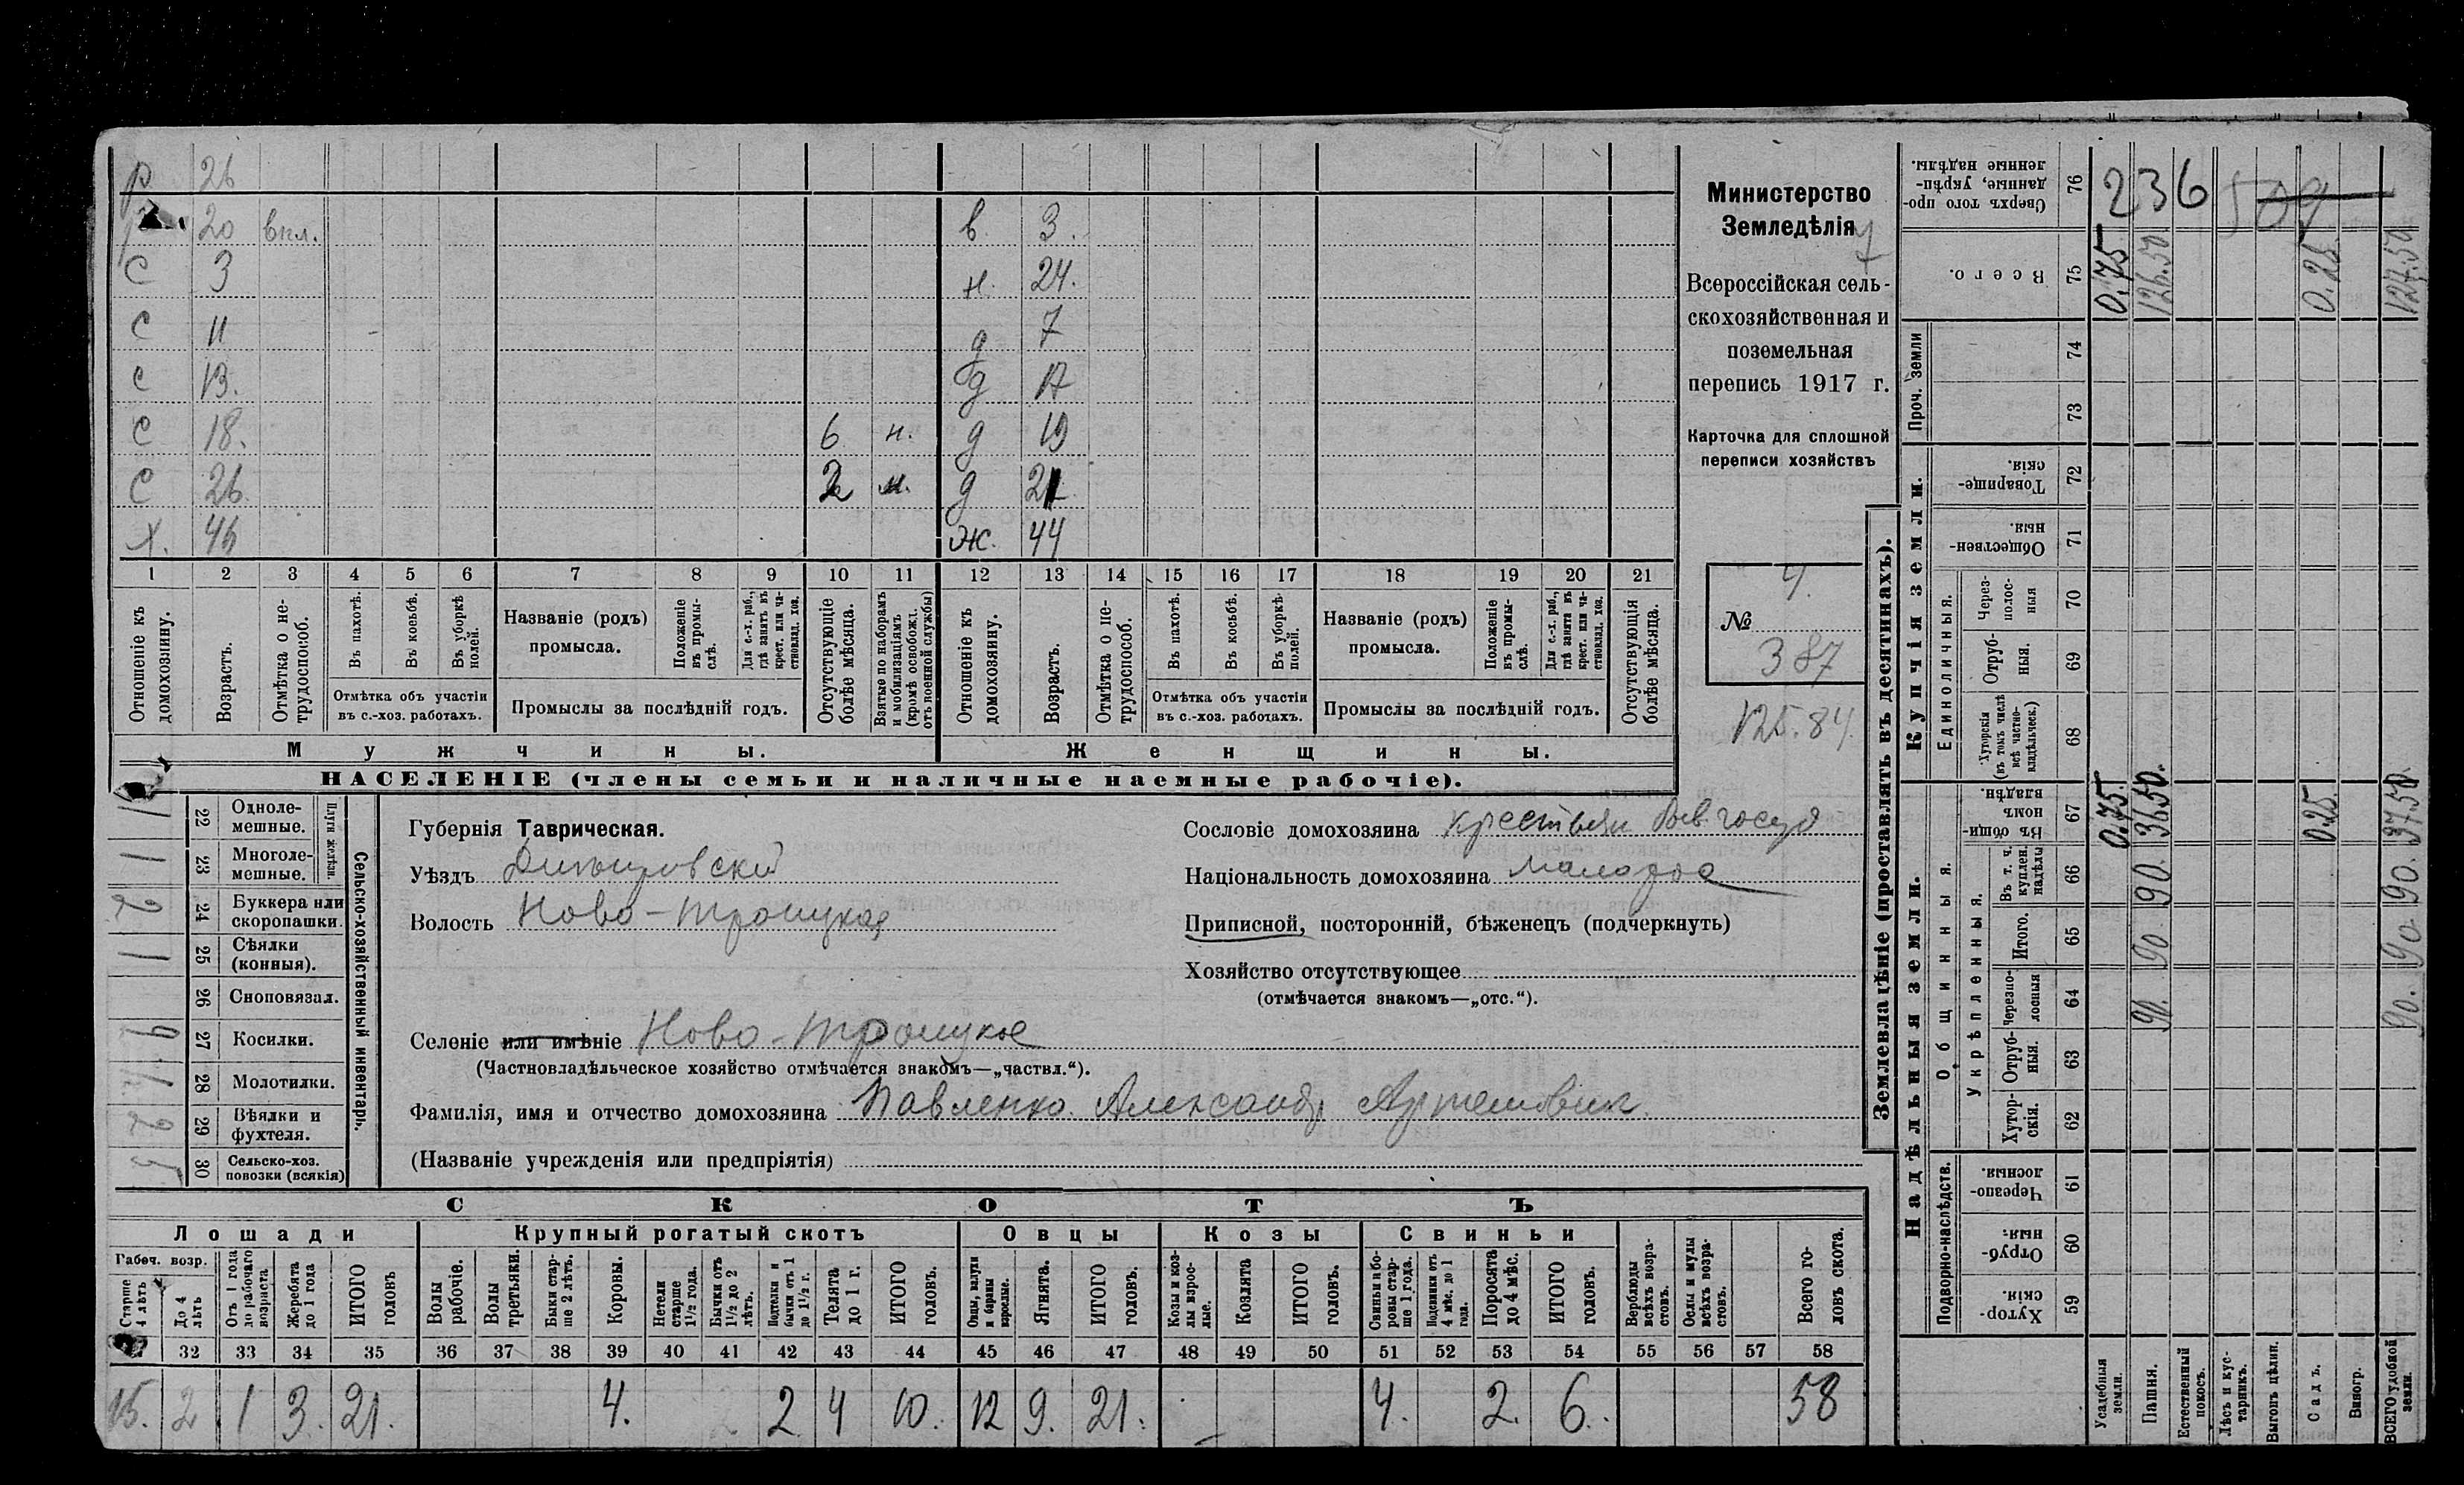 р 26
20 впл. в 3.
С 3 н. 24.
С 11 д 7
С 13. д 17
С 18. 6 н. д 19
С 26. 2 м. д 21
Х. 46 ж. 44
1 2 3 4 5 6 7 8 9 10 11 12 13 14 15 16 17 18 19 20 21
Отношеніе къ домохозяину.
Возрастъ.
Отмѣтка о не-трудоспособ.
Въ пахотѣ.
Въ косьбѣ.
Въ уборкѣ полей.
Отмѣтка объ участіи
въ с.-хоз. работахъ.
Названіе (родъ)
промысла.
Положеніе въ промы-слѣ.
Для с.-х. раб., гдѣ занятъ въ крест. или ча-стновлад. хоз.
Промыслы за послѣдній годъ.
Отсутствующіе болѣе мѣсяца.
Взятые по наборамъ и мобилизаціямъ (кромѣ освобожд. отъ военной службы)
Отношеніе къ домохозяину.
Возрастъ.
Отмѣтка о не-трудоспособ.
Въ пахотѣ.
Въ косьбѣ.
Въ уборкѣ полей.
Отмѣтка объ участіи
въ с.-хоз. работахъ.
Названіе (родъ)
промысла.
Положеніе въ промы-слѣ.
Для с.-х. раб., гдѣ занята въ крест. или ча-стновлад. хоз.
Промыслы за послѣдній годъ.
Отсутствующія болѣе мѣсяца.
Мужчины. Женщины.
НАСЕЛЕНІЕ (члены семьи и наличные наемные рабочіе).
Министерство
Земледѣлія
7
Всероссійская сель-
скохозяйственная и
поземельная
перепись 1917 г.
Карточка для сплошной
переписи хозяйствъ
4.
№
387
125.84.
Сельско-хозяйственный инвентарь.
Плуги желѣзн.
1 22 Однолемешные.
1 23 Многолемешные.
2 24 Буккера или скоропашки.
1 25 Сѣялки (конныя).
26 Сноповязал.
27 Косилки.
28 Молотилки.
2 29 Вѣялки и фухтеля.
5 30 Сельско-хоз. повозки (всякія)
Губернія Таврическая.
Уѣздъ Днѣпровскій
Волость Ново-Троицкая
Селеніе или имѣніе Ново-Троицкое
(Частновладѣльческое хозяйство отмѣчается знакомъ—„частвл.“).
Фамилія, имя и отчество домохозяина Павленко Александр Артемович
(Названіе учрежденія или предпріятія)
Сословіе домохозяина крестьян
Національность домохозяина малорос
Приписной, посторонній, бѣженецъ (подчеркнуть)
Хозяйство отсутствующее
(отмѣчается знакомъ—„отс.“).
СКОТЪ
Лошади Крупный рогатый скотъ Овцы Козы Свиньи
Рабоч. возр.
Старше 4 лѣтъ
До 4 лѣтъ
Отъ 1 года до рабочаго возраста
Жеребята до 1 года
ИТОГО головъ
Волы рабочіе.
Волы третьяки.
Быки стар-ше 2 лѣтъ.
Коровы.
Нетели старше 1½ года.
Бычки отъ 1½ до 2 лѣтъ.
Подтелки и бычки отъ 1 до 1½ г.
Телята до 1 г.
ИТОГО головъ.
Овцы, валухи и бараны взрослые.
Ягнята.
ИТОГО головъ.
Козы и коз-лы взрос-лые.
Козлята
ИТОГО головъ.
Свиньи и бо-ровы стар-ше 1 года.
Подсвинки отъ 4 мѣс. до 1 года.
Поросята до 4 мѣс.
ИТОГО головъ.
Верблюды всѣхъ возра-стовъ.
Ослы и мулы всѣхъ возра-стовъ.
Всего го-ловъ скота.
32 33 34 35 36 37 38 39 40 41 42 43 44 45 46 47 48 49 50 51 52 53 54 55 56 57 58
15. 2 1 3. 21. 4. 2 4 10. 12 9. 21. 4. 2. 6. 58
Землевладѣніе (проставлять въ десятинахъ).
Надѣльныя земли. Купчія земли. Проч. земли
Подворно-наслѣдств.
Общинныя.
Укрѣпленныя.
Единоличныя.
Хутор-скія. 59
Отруб-ныя. 60
Черезпо-лосныя. 61
Хутор-скія. 62
Отруб-ныя. 63
Черезпо-лосныя 64
Итого. 65
Въ т. ч. куплен. надѣлы 66
Въ общин-номъ владѣн. 67
Хуторскія (въ томъ числѣ всѣ частно-владѣльческ.) 68
Отруб-ныя. 69
Через-полос-ныя 70
Обществен-ныя. 71
Товарище-скія. 72
73
74
Всего. 75
Сверхъ того про-данные, укрѣп-ленные надѣлы. 76
236 509
Усадебныя земли. 0.75. 0.75
Пашня. 90. 90 90. 36.50. 126.50
Естественный покосъ.
Лѣсъ и кус-тарникъ.
Выгонъ цѣлин.
Садъ. 0.25. 0.25
Виногр.
ВСЕГО удобной земли. 90. 90. 90. 37.50. 127.50